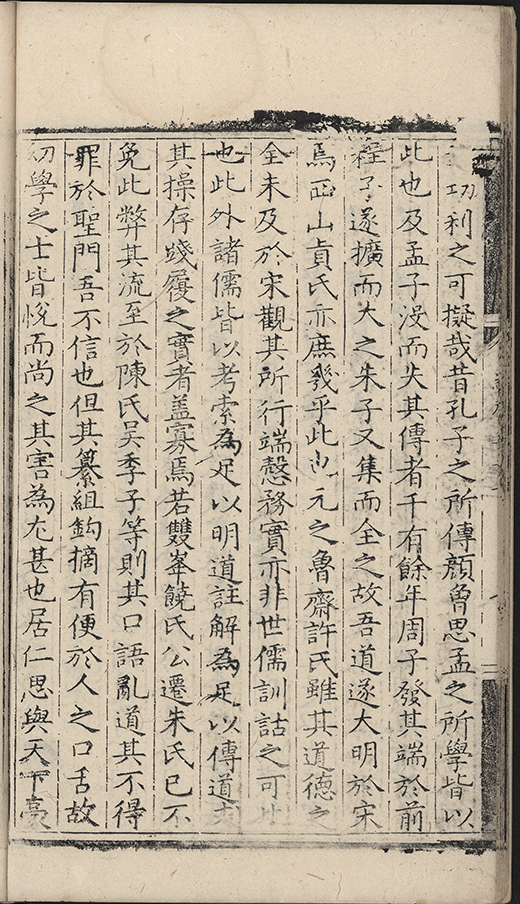 功利之可擬哉昔孔子之所傳顏曾思孟之所學皆以
此也及孟子沒而失其傳者千有餘年周子發其端於前
程子遂擴而大之朱子又集而全之故吾道遂大明於宋
焉西山貞氏亦庶幾乎此也元之魯齋許氏雖其道德之
全未及於宋觀其所行端慤務實亦非世儒訓詁之可比
也此外諸儒皆以考索為足以明道註解為足以傳道求
其操存踐履之實者盖寡焉若雙峯饒氏公遷朱氏已不
免此弊其流至於陳氏吳季子等則其口語亂道其不得
罪於聖門吾不信也但其纂組鈎摘有便於人之口舌故
幼學之士皆悅而尚之其害為尤甚也居仁思與天下豪